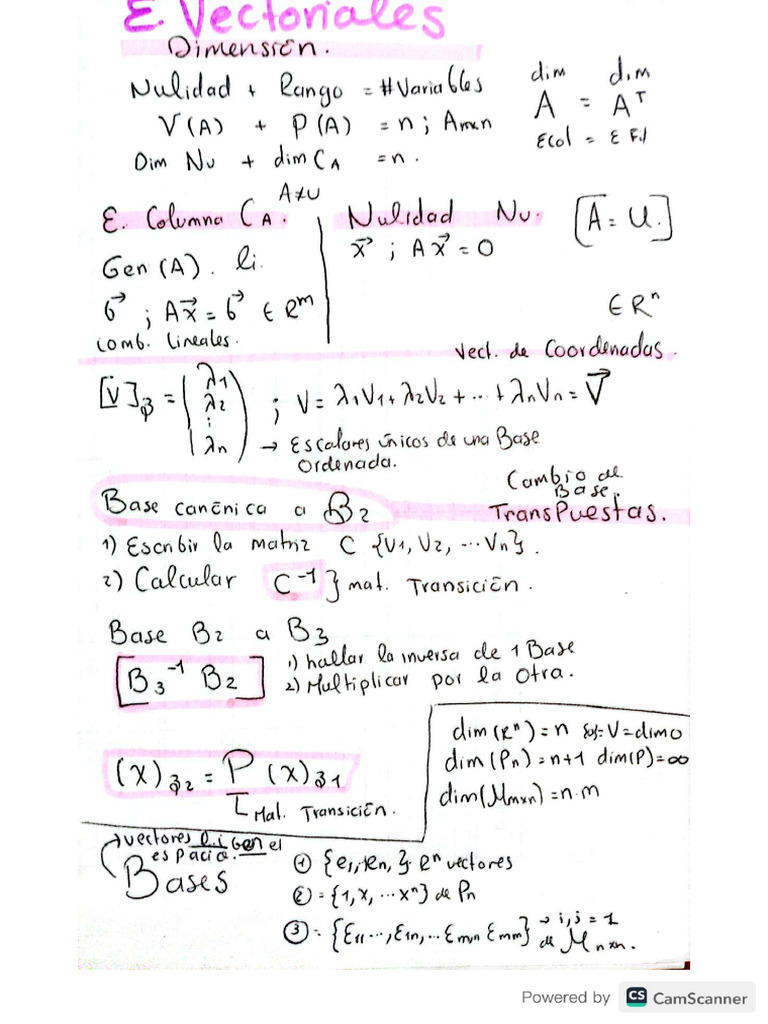 E. Vectoriales
Dimensión.
Nulidad + Rango = #Variables
V(A) + P(A) = n ; Amxn
Dim Nu + dim CA = n.
dim dim
A = Aᵀ
Ecol = E Fil
A≠U
E. Columna CA.
Gen (A). li.
b⃗ ; Ax⃗ = b⃗ ∈ Rᵐ
comb. lineales.
Nulidad Nu. [A = U.]
x⃗ ; Ax⃗ = 0
∈ Rⁿ
Vect. de Coordenadas.
[V]β = (λ1 λ2 ⋮ λn) ; V = λ1V1 + λ2V2 + ... + λnVn = V⃗
→ Escalares únicos de una Base
Ordenada.
Cambio de
Base.
Transpuestas.
Base canónica a B2
1) Escribir la matriz C {V1, V2, ... Vn}.
2) Calcular C⁻¹ } mat. Transición.
Base B2 a B3
[B3⁻¹ B2]
1) hallar la inversa de 1 Base
2) Multiplicar por la Otra.
(x)β2 = P (x)β1
Mat. Transición.
dim(Rⁿ) = n V = dim 0
dim(Pn) = n+1 dim(P) = ∞
dim(Mmxn) = n·m
→ vectores l.i Gen el
espacio.
Bases
① {e1, en, } Rⁿ vectores
② = {1, x, ... xⁿ} de Pn
③ = {E11 ..., E1n, ... Emn Emm} → i,j = 1
de Mnxn.
Powered by CS CamScanner